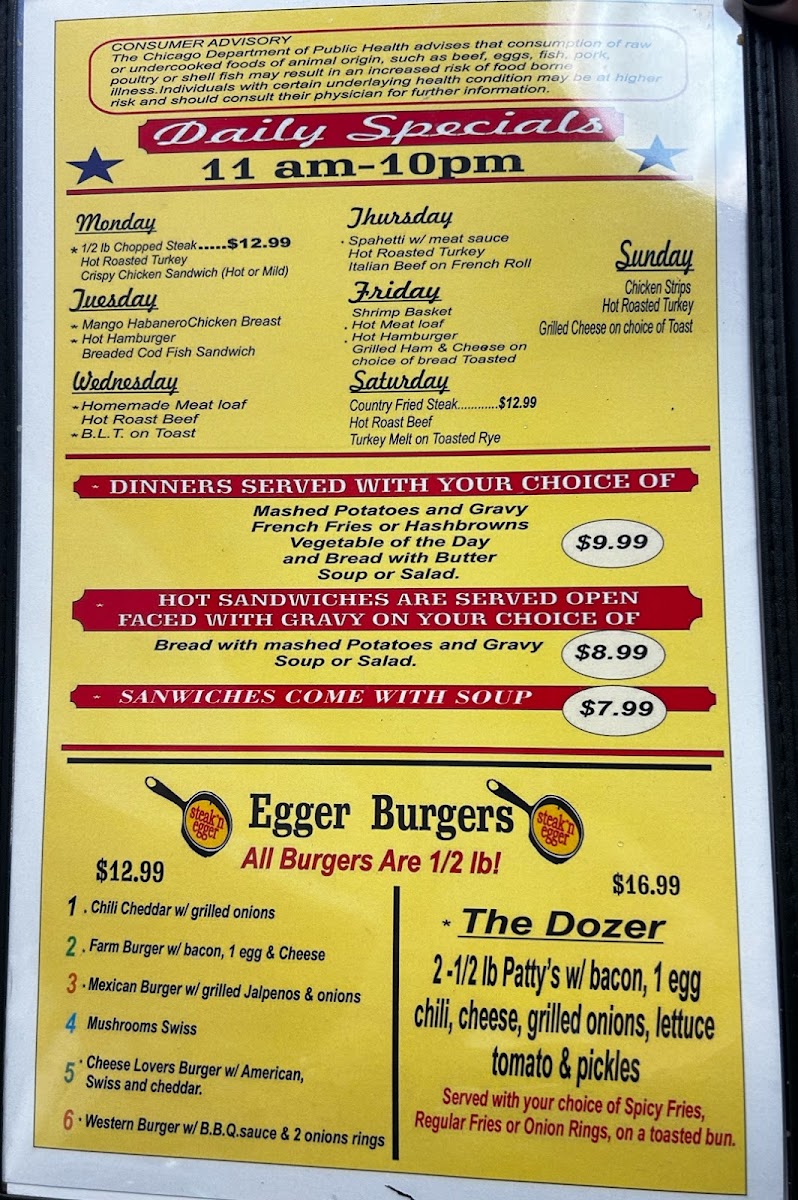 CONSUMER ADVISORY
The Chicago Department of Public Health advises that consumption of raw
or undercooked foods of animal origin, such as beef, eggs, fish, pork,
poultry or shell fish may result in an increased risk of food borne
illness.Individuals with certain underlaying health condition may be at higher
risk and should consult their physician for further information.
Daily Specials
11 am-10pm
Monday
* 1/2 lb Chopped Steak.....$12.99
Hot Roasted Turkey
Crispy Chicken Sandwich (Hot or Mild)
Tuesday
* Mango HabaneroChicken Breast
* Hot Hamburger
Breaded Cod Fish Sandwich
Wednesday
* Homemade Meat loaf
Hot Roast Beef
* B.L.T. on Toast
Thursday
. Spahetti w/ meat sauce
Hot Roasted Turkey
Italian Beef on French Roll
Friday
Shrimp Basket
. Hot Meat loaf
. Hot Hamburger
Grilled Ham & Cheese on
choice of bread Toasted
Saturday
Country Fried Steak............$12.99
Hot Roast Beef
Turkey Melt on Toasted Rye
Sunday
Chicken Strips
Hot Roasted Turkey
Grilled Cheese on choice of Toast
* DINNERS SERVED WITH YOUR CHOICE OF
Mashed Potatoes and Gravy
French Fries or Hashbrowns
Vegetable of the Day
and Bread with Butter
Soup or Salad.
$9.99
* HOT SANDWICHES ARE SERVED OPEN
FACED WITH GRAVY ON YOUR CHOICE OF
Bread with mashed Potatoes and Gravy
Soup or Salad.
$8.99
* SANWICHES COME WITH SOUP
$7.99
steak'n
egger
Egger Burgers
steak'n
egger
All Burgers Are 1/2 lb!
$12.99
1 . Chili Cheddar w/ grilled onions
2 . Farm Burger w/ bacon, 1 egg & Cheese
3 . Mexican Burger w/ grilled Jalpenos & onions
4 Mushrooms Swiss
5 . Cheese Lovers Burger w/ American,
Swiss and cheddar.
6 . Western Burger w/ B.B.Q.sauce & 2 onions rings
$16.99
* The Dozer
2 -1/2 lb Patty's w/ bacon, 1 egg
chili, cheese, grilled onions, lettuce
tomato & pickles
Served with your choice of Spicy Fries,
Regular Fries or Onion Rings, on a toasted bun.